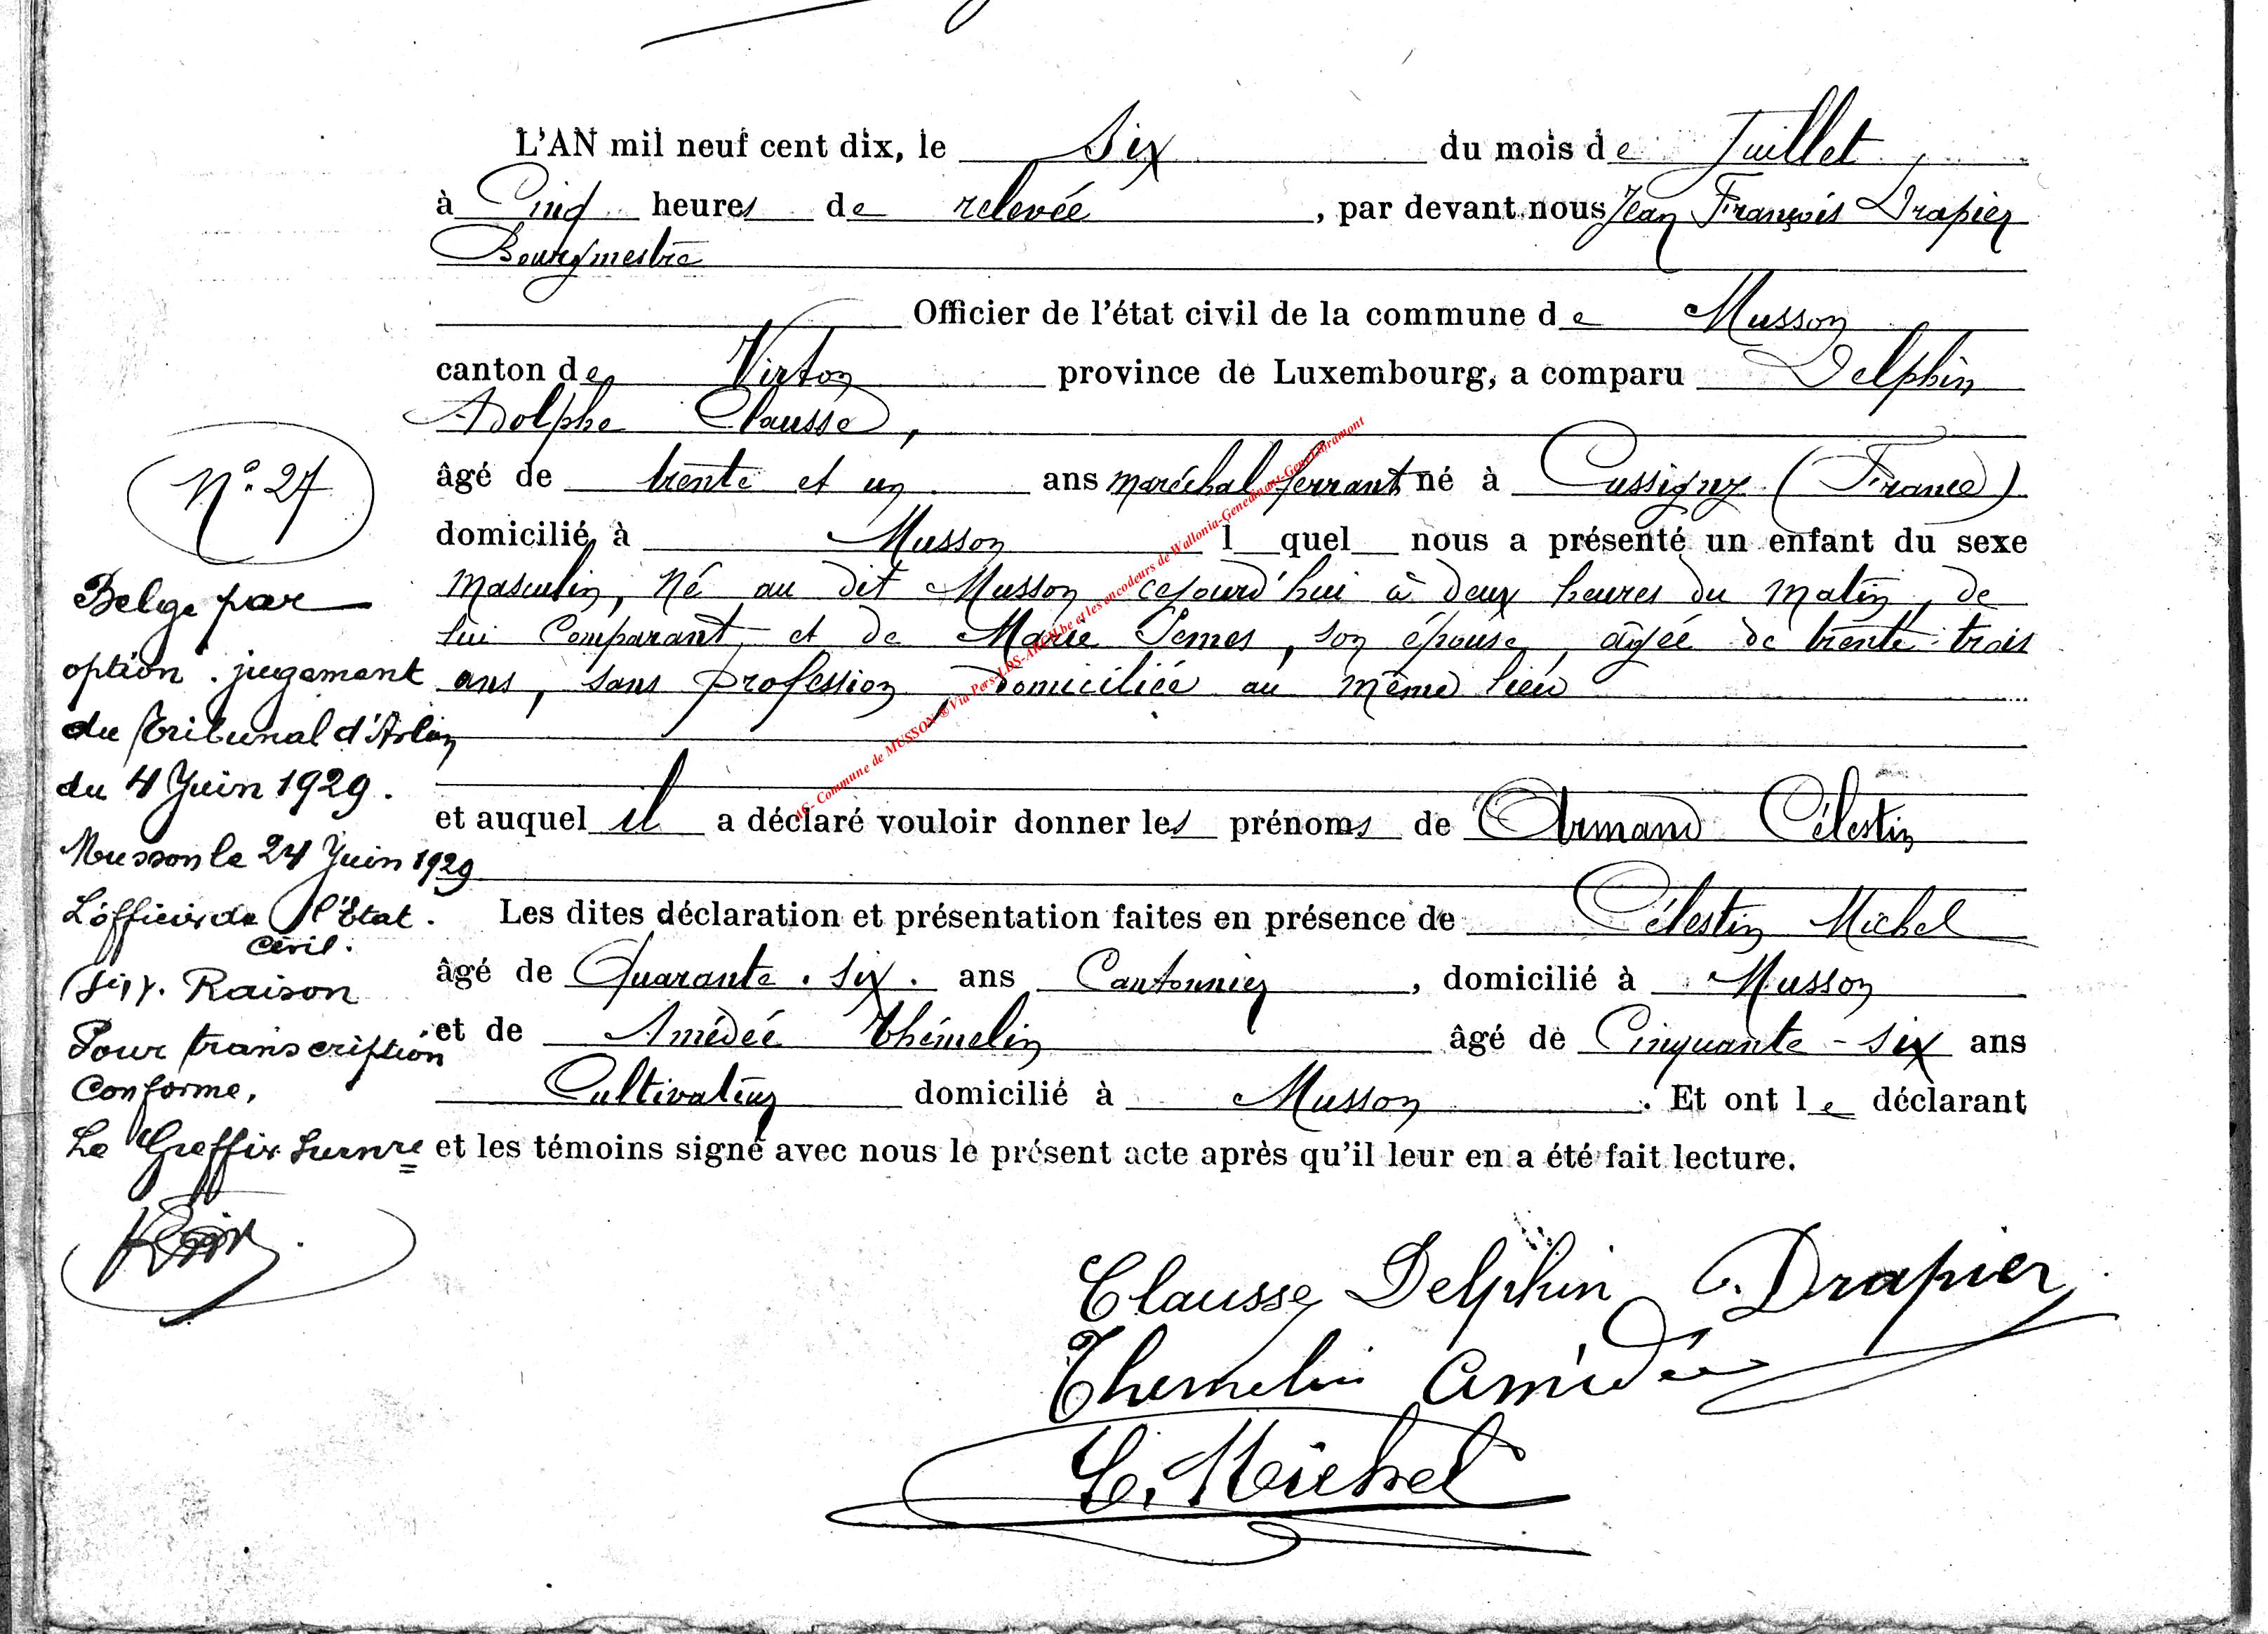 L'AN mil neuf cent dix, le Six du mois de Juillet
à Cinq heures de relevée, par devant nous Jean François Drapier
Bourgmestre
Officier de l'état civil de la commune de Musson
canton de Virton province de Luxembourg, a comparu Delphin
Adolphe Clausse,
âgé de trente et un ans maréchal ferrant né à Cussigny (France)
domicilié à Musson l quel nous a présenté un enfant du sexe
masculin, né au dit Musson cejourd'hui à deux heures du matin, de
lui Comparant, et de Marie Semes, son épouse, âgée de trente-trois
ans, sans profession, domiciliée au même lieu
et auquel il a déclaré vouloir donner les prénoms de Armand Célestin
Les dites déclaration et présentation faites en présence de Célestin Michel
âgé de Quarante-six ans Cantonnier, domicilié à Musson
et de Amédée Thémelin âgé de Cinquante-six ans
Cultivateur domicilié à Musson. Et ont le déclarant
et les témoins signé avec nous le présent acte après qu'il leur en a été fait lecture.
Clausse Delphin Drapier
Themelin Amédée
C. Michel
N° 27
Belge par
option. jugement
du tribunal d'Arlon
du 4 Juin 1929.
Musson le 24 Juin 1929
L'officier de l'Etat
civil.
Raison
Pour transcription
conforme,
Le Greffier
AG- Commune de MUSSON ® Via Pers-LDS-ARCH.be et les encodeurs de Wallonia-Genedinant-GeneLibramont